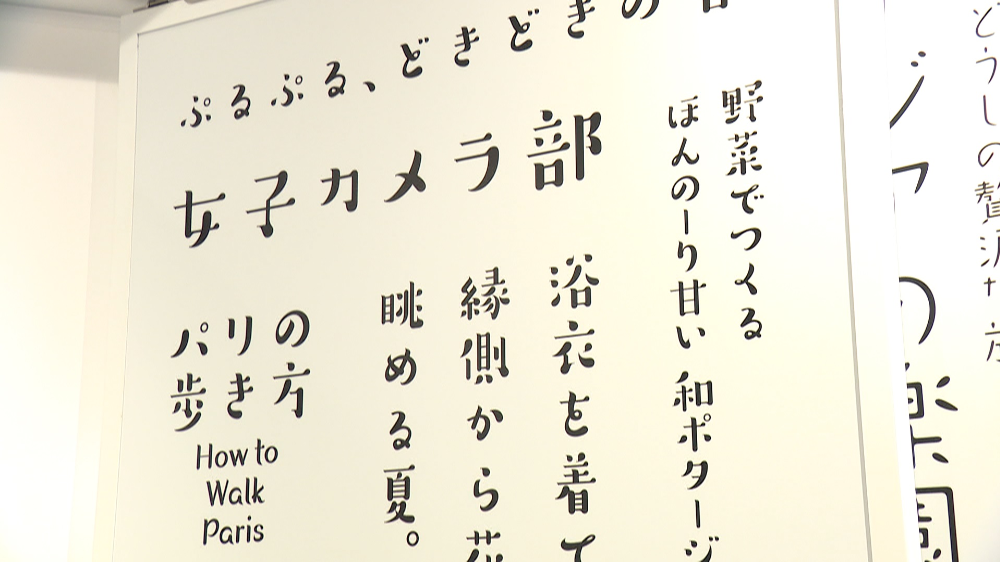 ぷるぷる、どきどきの
女子カメラ部
野菜でつくる
ほんのーり甘い 和ポタージ
浴衣を着て
縁側から
眺める夏。
パリの
歩き方
How to
Walk
Paris